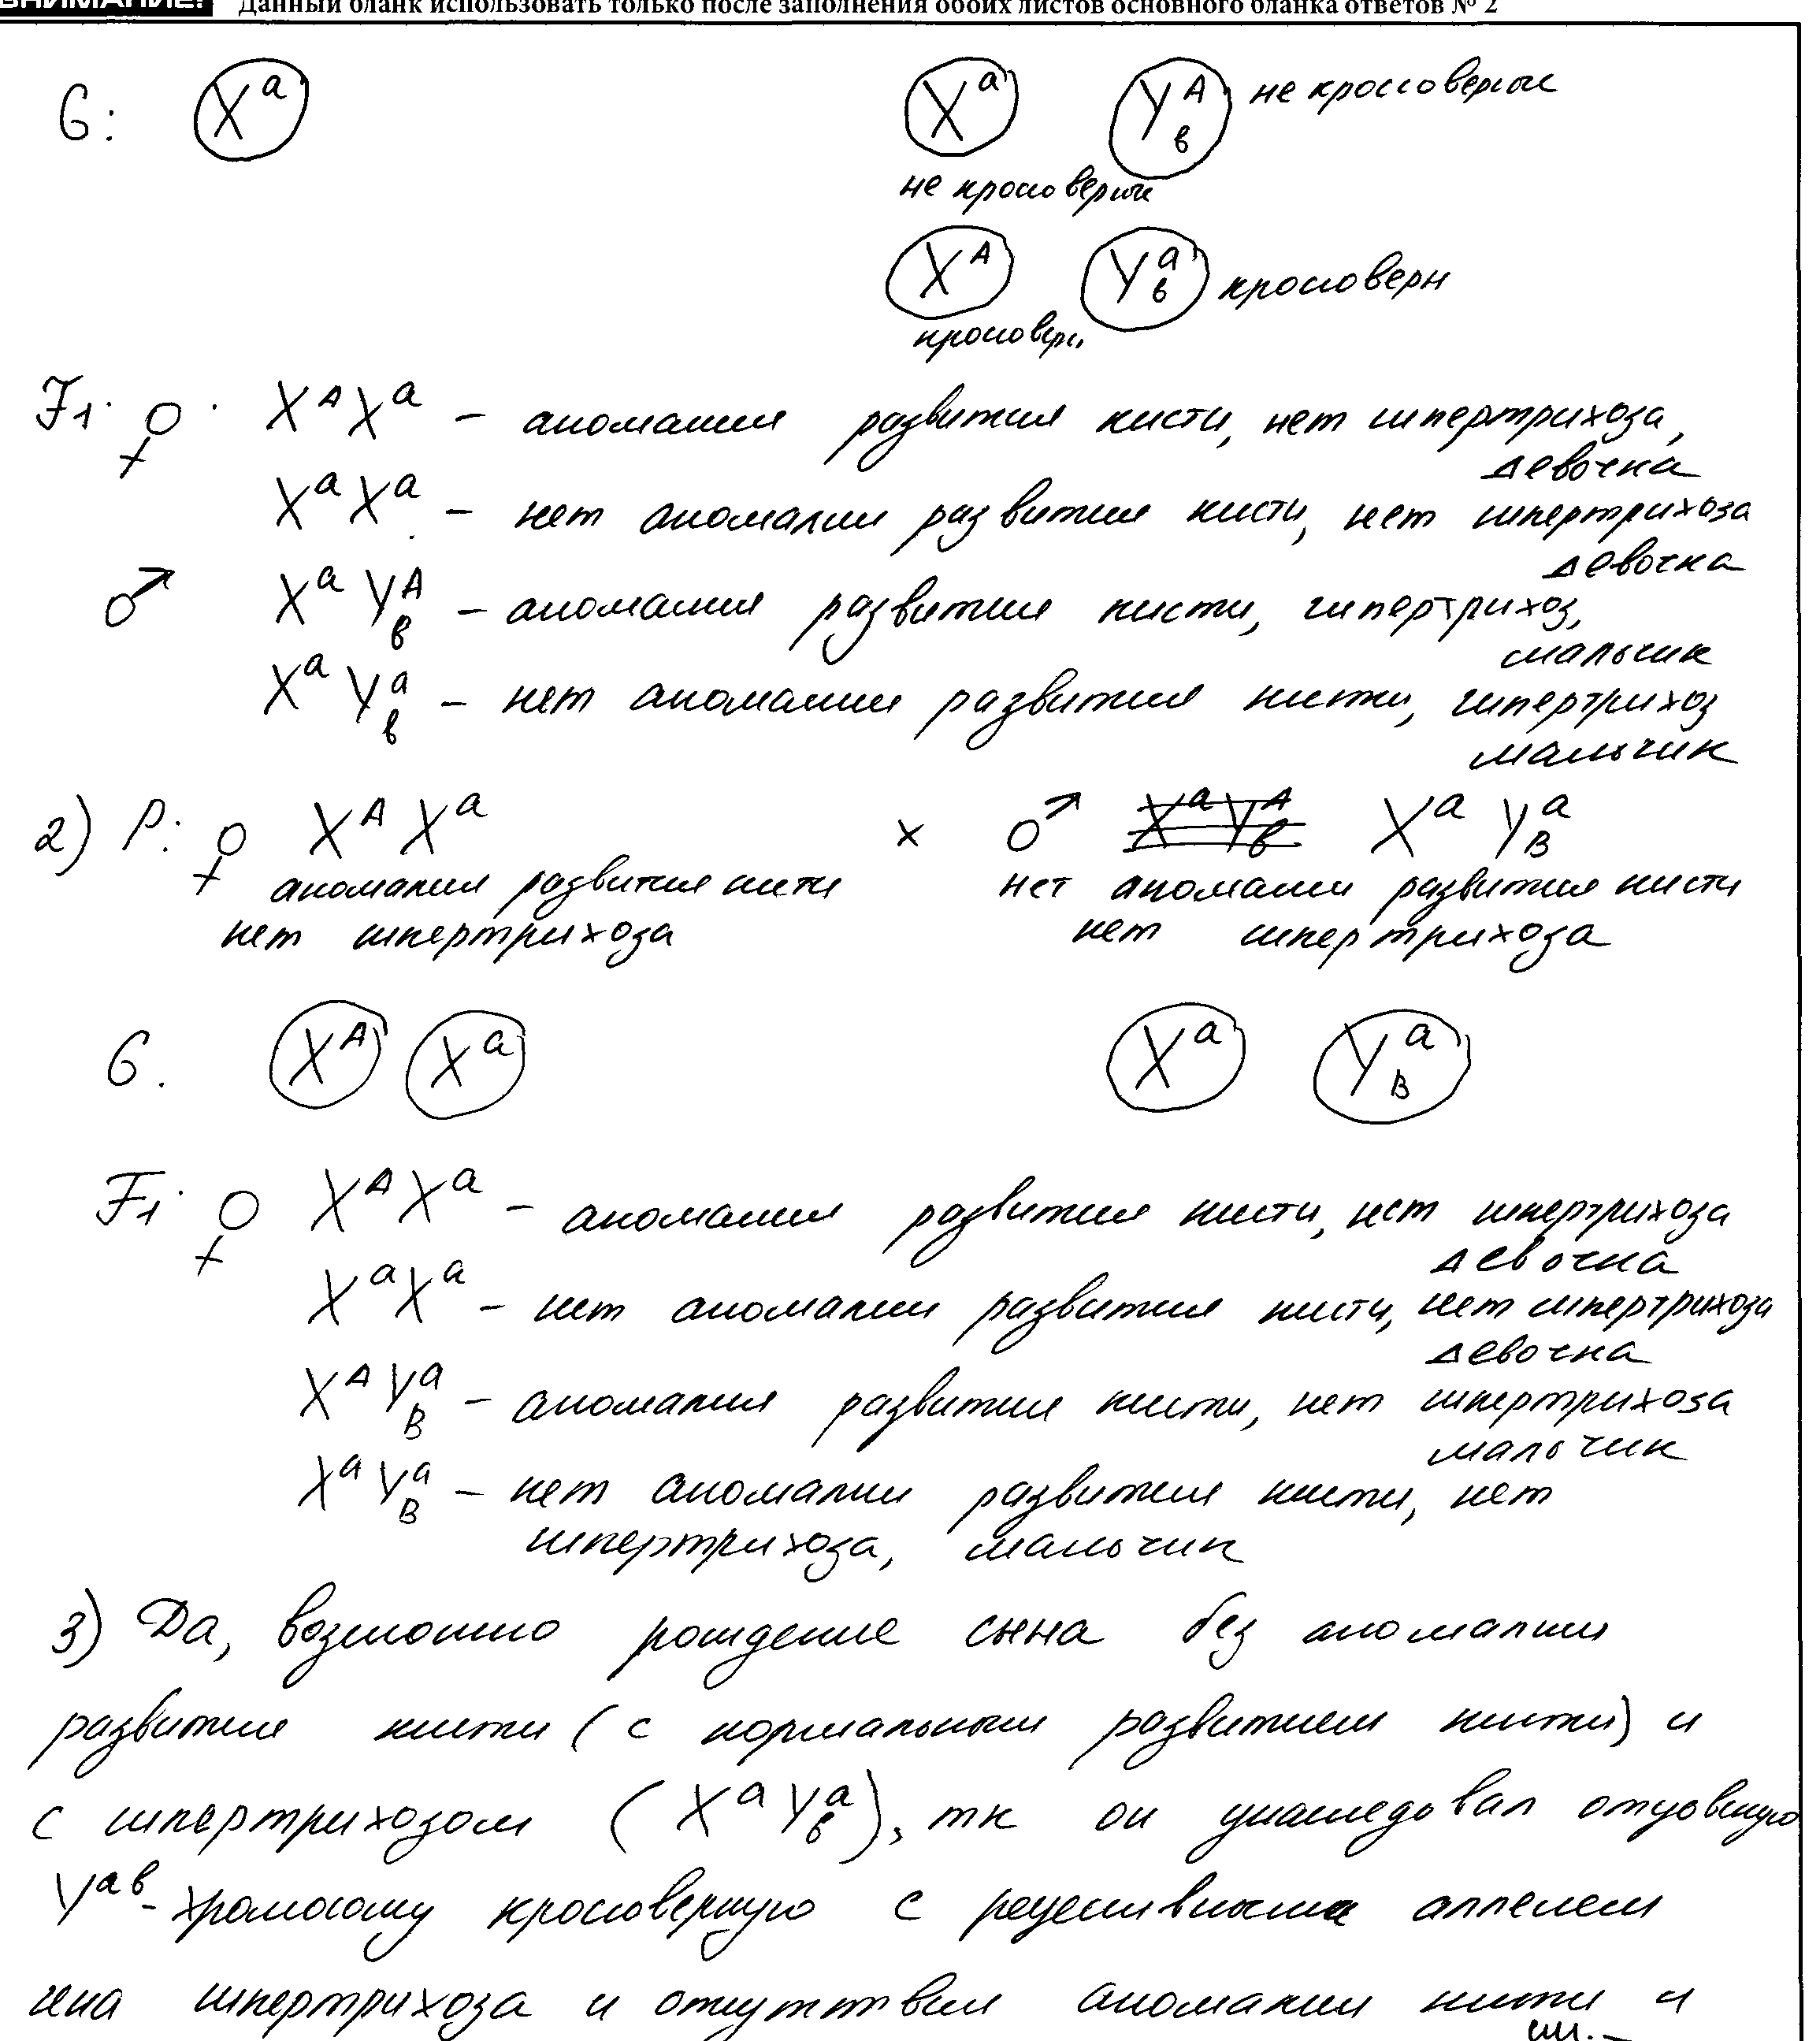 ВНИМАНИЕ! Данный бланк использовать только после заполнения обоих листов основного бланка ответов № 2
G: Xᵃ Xᵃ Yᴬв не кроссоверные
не кроссоверные
Xᴬ Yᵃв кроссоверн
кроссоверн
F1: ♀ XᴬXᵃ – аномалия развития кисти, нет гипертрихоза,
девочка
XᵃXᵃ – нет аномалии развития кисти, нет гипертрихоза
девочка
♂ XᵃYᴬв – аномалия развития кисти, гипертрихоз,
мальчик
XᵃYᵃв – нет аномалии развития кисти, гипертрихоз
мальчик
2) P: ♀ XᴬXᵃ × ♂ XᵃYᴬв XᵃYᵃB
аномалия развития кисти нет аномалии развития кисти
нет гипертрихоза нет гипертрихоза
G. Xᴬ Xᵃ Xᵃ YᵃB
F1: ♀ XᴬXᵃ – аномалия развития кисти, нет гипертрихоза
девочка
XᵃXᵃ – нет аномалии развития кисти, нет гипертрихоза
девочка
XᴬYᵃB – аномалия развития кисти, нет гипертрихоза
мальчик
XᵃYᵃB – нет аномалии развития кисти, нет
гипертрихоза, мальчик
3) Да, возможно рождение сына без аномалии
развития кисти (с нормальным развитием кисти) и
с гипертрихозом (XᵃYᵃв), тк он унаследовал отцовскую
Yᵃᵇ-хромосому кроссоверную с рецессивным аллелем
гена гипертрихоза и отсутствия аномалии кисти и
см. –